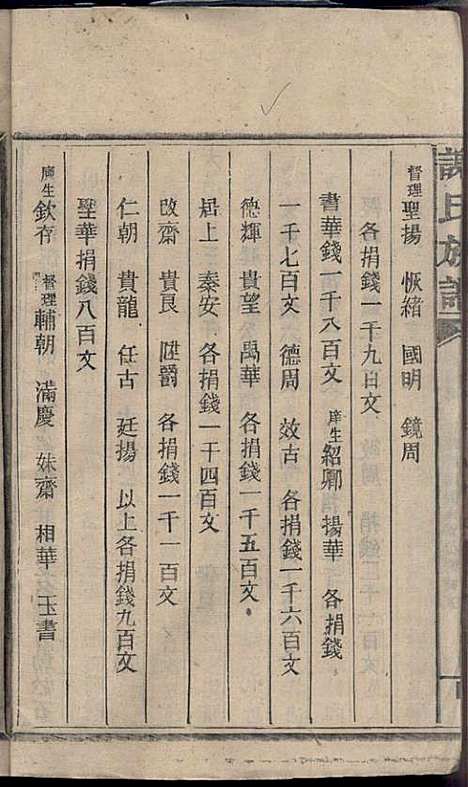 氏族譜
督理聖揚 恢緒 國明 鏡周
各捐錢一千九百文
書華錢一千八百文 庠生紹卿 揚華 各捐錢
一千七百文 德周 效古 各捐錢一千六百文
德輝 貴望 禹華 各捐錢一千五百文
居上 秦安 各捐錢一千四百文
改齋 貴良 陞爵 各捐錢一千一百文
仁朝 貴龍 任古 廷揚 以上各捐錢九百文
聖華捐錢八百文
庠生欽存 督理輔朝 滿慶 妹齋 相華 玉書